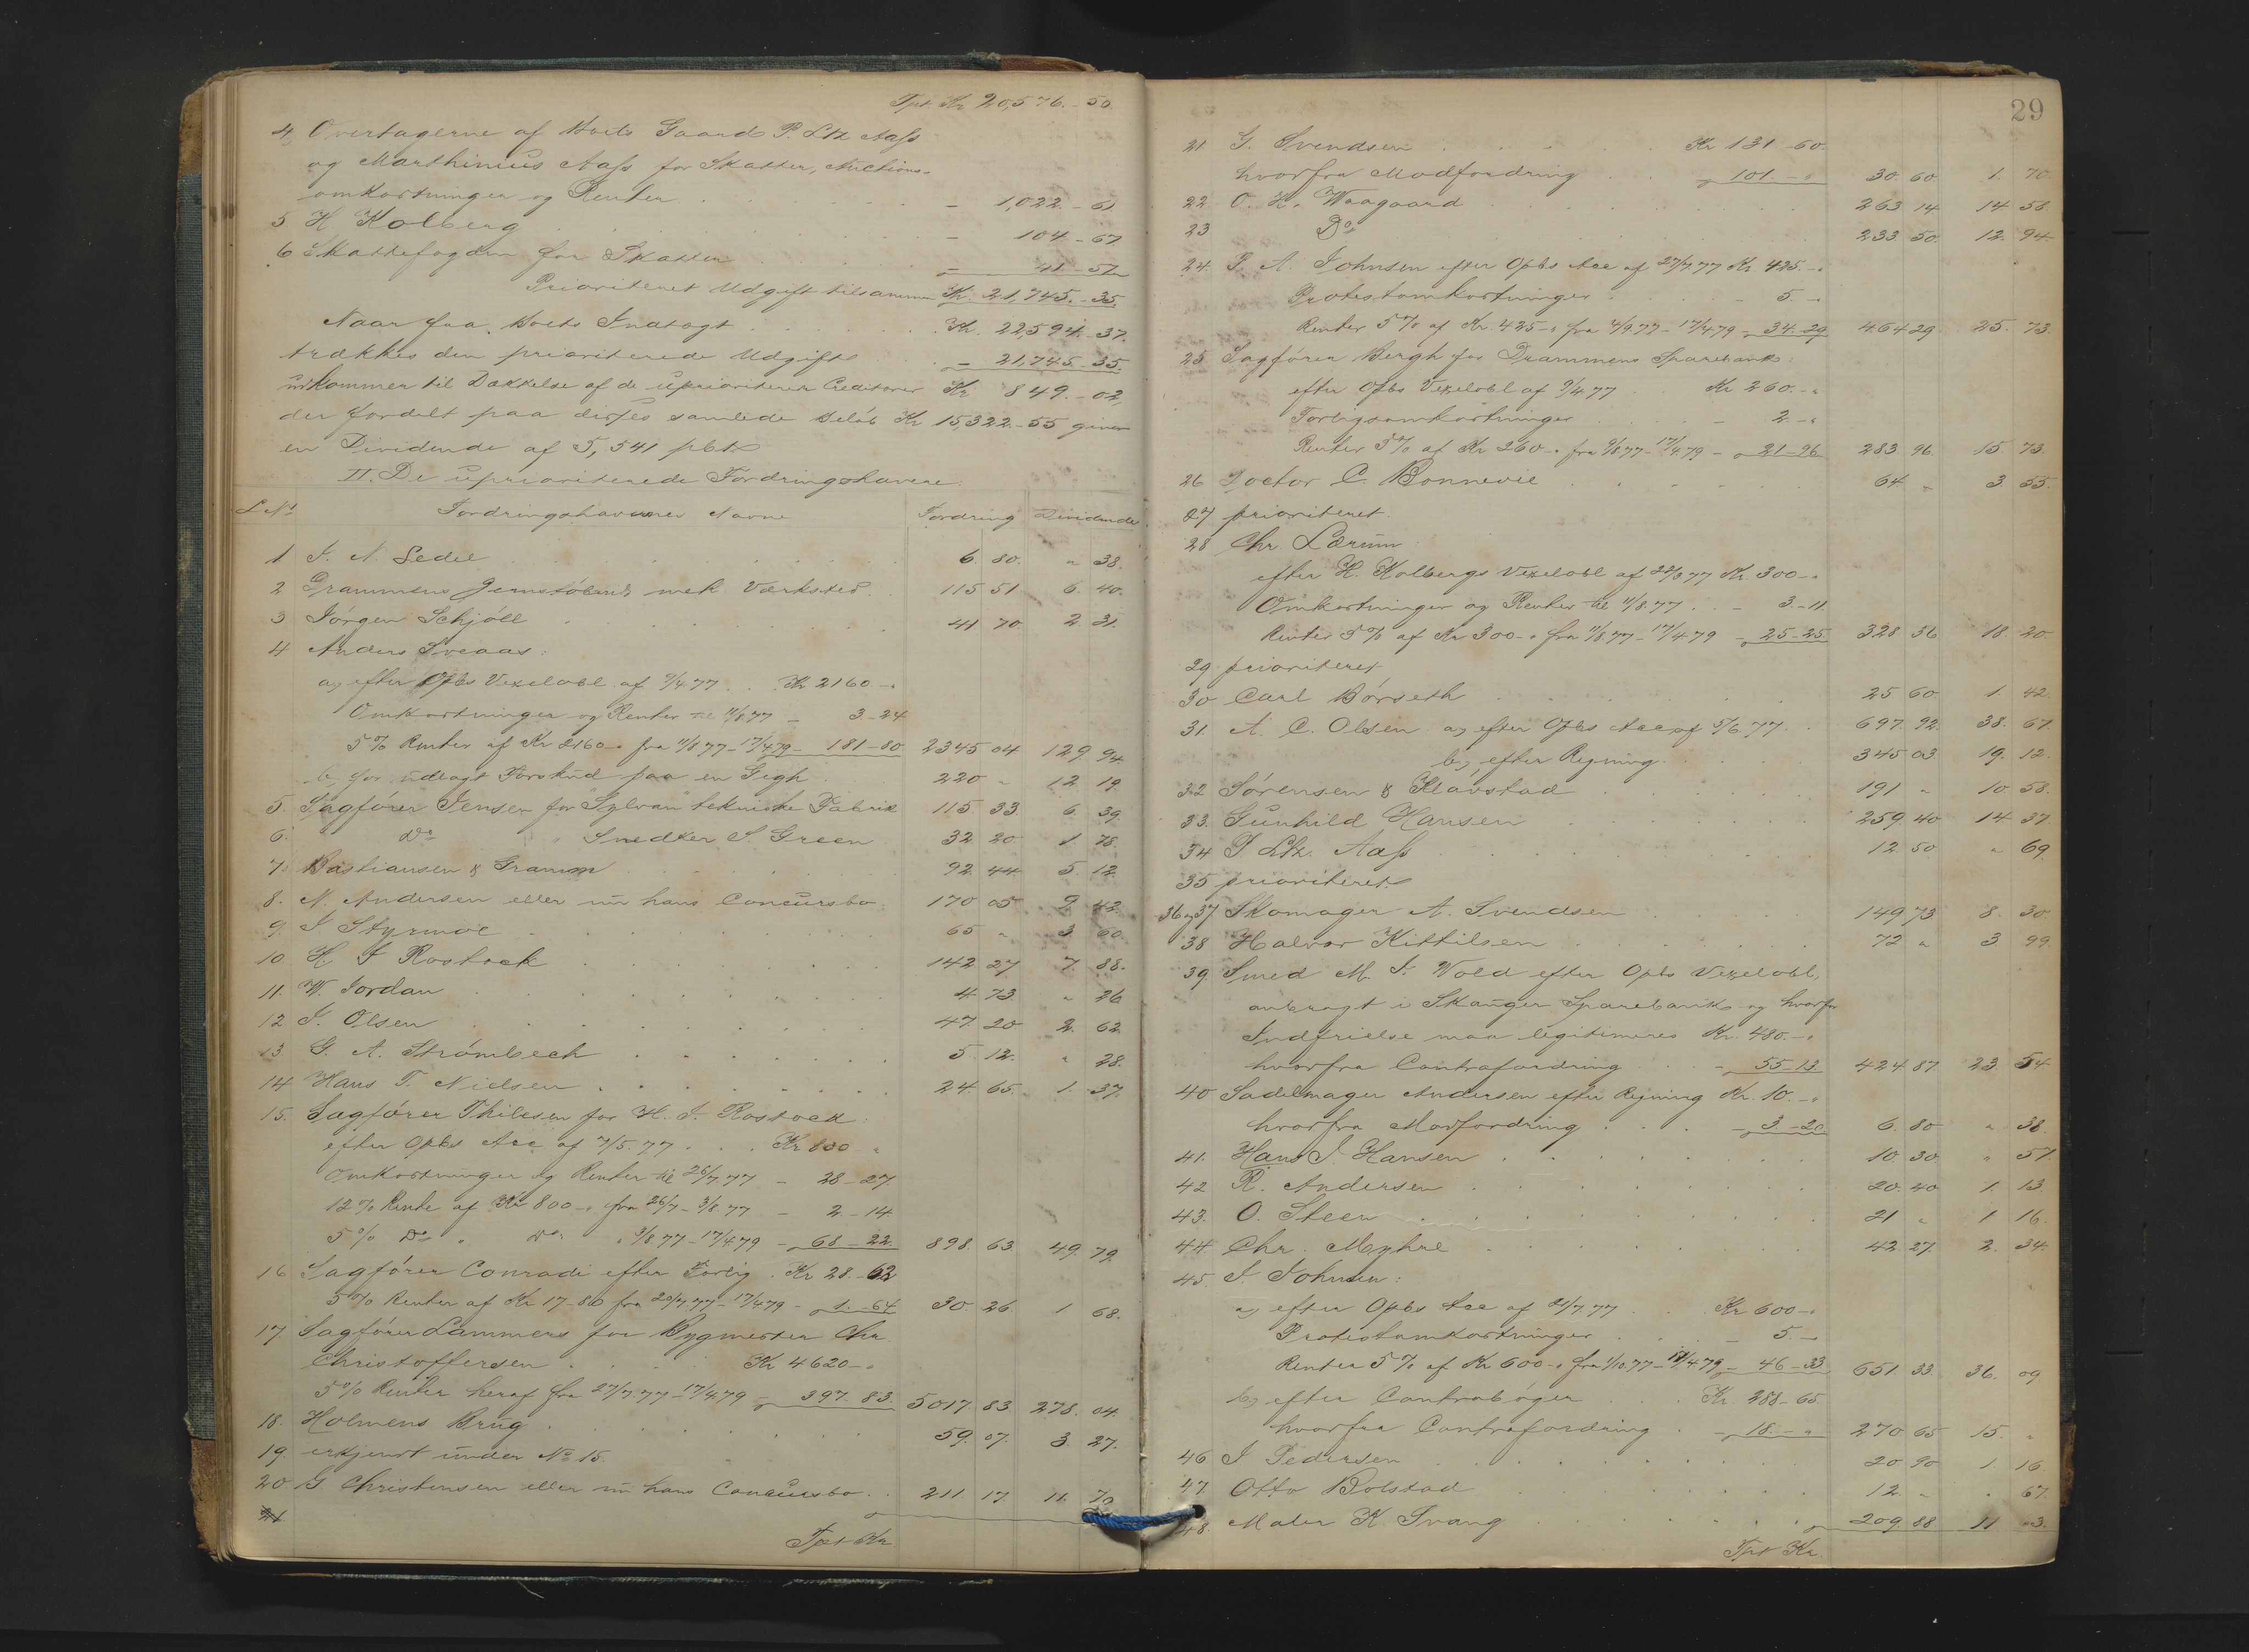 Tpt. Kr. 20,576.-50.
4, Overtagerne af Boets Gaard P. Ltz Aass
og Marthinius Aass for Skatter, Auctions-
omkostninger og Renter . . . - 1,022.-61.
5 H Kolberg . . . - 104-67.
6 Skattefogden for Skatter . . . - 41-57
Prioriteret Udgift tilsammen Kr. 21,745.-35.
Naar fra Boets Indtægt . . . Kr. 22,594.-37.
trækkes den prioriterede Udgift . . - 21,745-35.
udkommer til Dækkelse af de uprioriterede Creditorer Kr 849.-02,
der fordelt paa disses samlede Beløb Kr 15,322.-55 giver
en Dividende af 5,541 pCt.
II. De uprioriterede Fordringshavere.
L.No Fordringshavernes Navne Fordring Dividende
1 J. N. Sedel . . . 6. 80. " 38.
2 Drammens Jernstøberi & mek Værksted. 115 51 6. 40.
3 Jørgen Schjøll . . . 41 70 2. 31.
4 Anders Sveaas:
a, efter Opbs Vexelobl. af 9/4.77 . . Kr 2160-"
Omkostninger og Renter til 11/8.77 - 3-24
5% Renter af Kr 2160-" fra 11/8 77-17/4 79 - 181-80. 2345 04 129 94.
b, for udlagt Forskud paa en Gigh . 220 " 12 19
5. Sagfører Jensen for "Sylvan" tekniske Fabrik 115. 33 6. 39.
6. Do " Snedker S. Green 32. 20. 1. 78.
7. Bastiansen & Gramm . . . 92. 44 5 12.
8. N. Andersen eller nu hans Concursbo. 170 05 9. 42
9. J Styrmoe . . . 65 " 3. 60.
10 H. J Rostock . . . 142 27 7. 88.
11. W. Jordan . . . 4. 73. " 26
12 J. Olsen . . . 47. 20 2. 62
13 G. A. Strømbech . . . 5. 12. " 28.
14 Hans T. Nielsen . . . 24. 65. 1. 37.
15. Sagfører Thilesen for H. J. Rostock:
efter Opbs Acc af 7/5.77 . . . Kr 800 "
Omkostninger og Renter til 26/7.77 - 28-27
12% Rente af Kr 800-" fra 26/7-3/8.77 - 2.-14.
5% Do " Do " 3/8.77-17/4 79 - 68-22. 898. 63 49. 79.
16 Sagfører Conradi efter Forlig . Kr 28.-62
5% Renter af Kr 17-80 fra 20/7.77-17/4 79 - 1.-64 30. 26. 1 68.
17 Sagfører Lammers for Bygmester Chr
Christoffersen . . . Kr 4620-"
5% Renter heraf fra 27/7.77-17/4 79 - 397. 83. 5017. 83 278. 04.
18. Holmens Brug . . . 59. 07. 3. 27.
19. erkjendt under No 15.
20 G Christensen eller nu hans Concursbo . . 211. 17 11. 70
21
Tpt Kr.
29
21 G. Svendsen . . . Kr 131-60.
hvorfra Modfordring . . - 101.-" 30. 60 1. 70.
22 O. H. Waagaard . . . 263 14 14 58.
23 Do . . . 233. 50. 12. 94-
24. P. A. Johnsen efter Opbs Acc af 27/7 77 Kr. 425.-"
Protestomkostninger . . . - 5.-"
Renter 5% af Kr. 425-" fra 4/9.77-17/4 79 - 34.29 464 29 25. 73.
25 Sagfører Bergh for Drammens Sparebank:
efter Opbs Vexelobl af 9/4 77 . Kr 260.-"
Forligsomkostninger . . . - 2.-"
Renter 5% af Kr 260-" fra 9/8.77-17/4 79 - 21-96 283. 96. 15. 73.
26 Doctor C. Bonnevie . . . 64 " 3 55.
27 prioriteret.
28 Chr. Lærum
efter H. Kolbergs Vexelobl af 22/3 77 Kr 300-"
Omkostninger og Renter til 11/8.77 . . - 3.-11.
Renter 5% af Kr 300-" fra 11/8 77-17/4 79 - 25-25. 328 36 18. 20.
29 prioriteret
30 Carl Børseth . . . 25 60. 1. 42.
31. A. C. Olsen a, efter Opbs Acc af 5/6.77 . . 697. 92. 38. 67.
b, efter Regning . . . 345 03 19. 12.
32 Sørensen & Klavstad . . . 191 " 10. 58.
33. Gunhild Hansen . . . 259. 40 14 37.
34 P Ltz. Aass . . . 12. 50 " 69.
35 prioriteret
36 og 37 Skomager A. Svendsen . . . 149 73 8. 30.
38 Halvor Kittilsen . . . 72 " 3 99.
39 Smed M. J. Wold efter Opbs Vexelobl,
anbragt i Skauger Sparebank og hvorfor
Indfrielse maa legitimeres Kr. 480.-"
hvorfra Contrafordring . . . - 55-13. 424. 87 23. 54
40 Sadelmager Andersen efter Regning Kr. 10.-"
hvorfra Modfordring . . . - 3.-20 6. 80 " 38
41. Hans J. Hansen . . . 10. 30. " 57.
42 R. Andersen . . . 20. 40 1. 13
43. O. Steen . . . 21 " 1 16.
44. Chr. Myhre . . . 42. 27. 2. 34.
45. J. Johnsen:
a, efter Opbs Acc af 21/7 77 . . Kr 600-"
Protestomkostninger . . - 5.-"
Renter 5% af Kr 600-" fra 1/10.77-17/4 79 - 46-33 651. 33. 36. 09
b, efter Contrabøger . . . Kr. 288-65.
hvorfra Contrafordring . - 18.-" 270 65 15. "
46 J Pedersen . . . 20 90 1. 16
47. Otto Bolstad . . . 12. " " 67.
48. Maler K. Svang . . . 209. 88 11 63.
Tpt Kr.